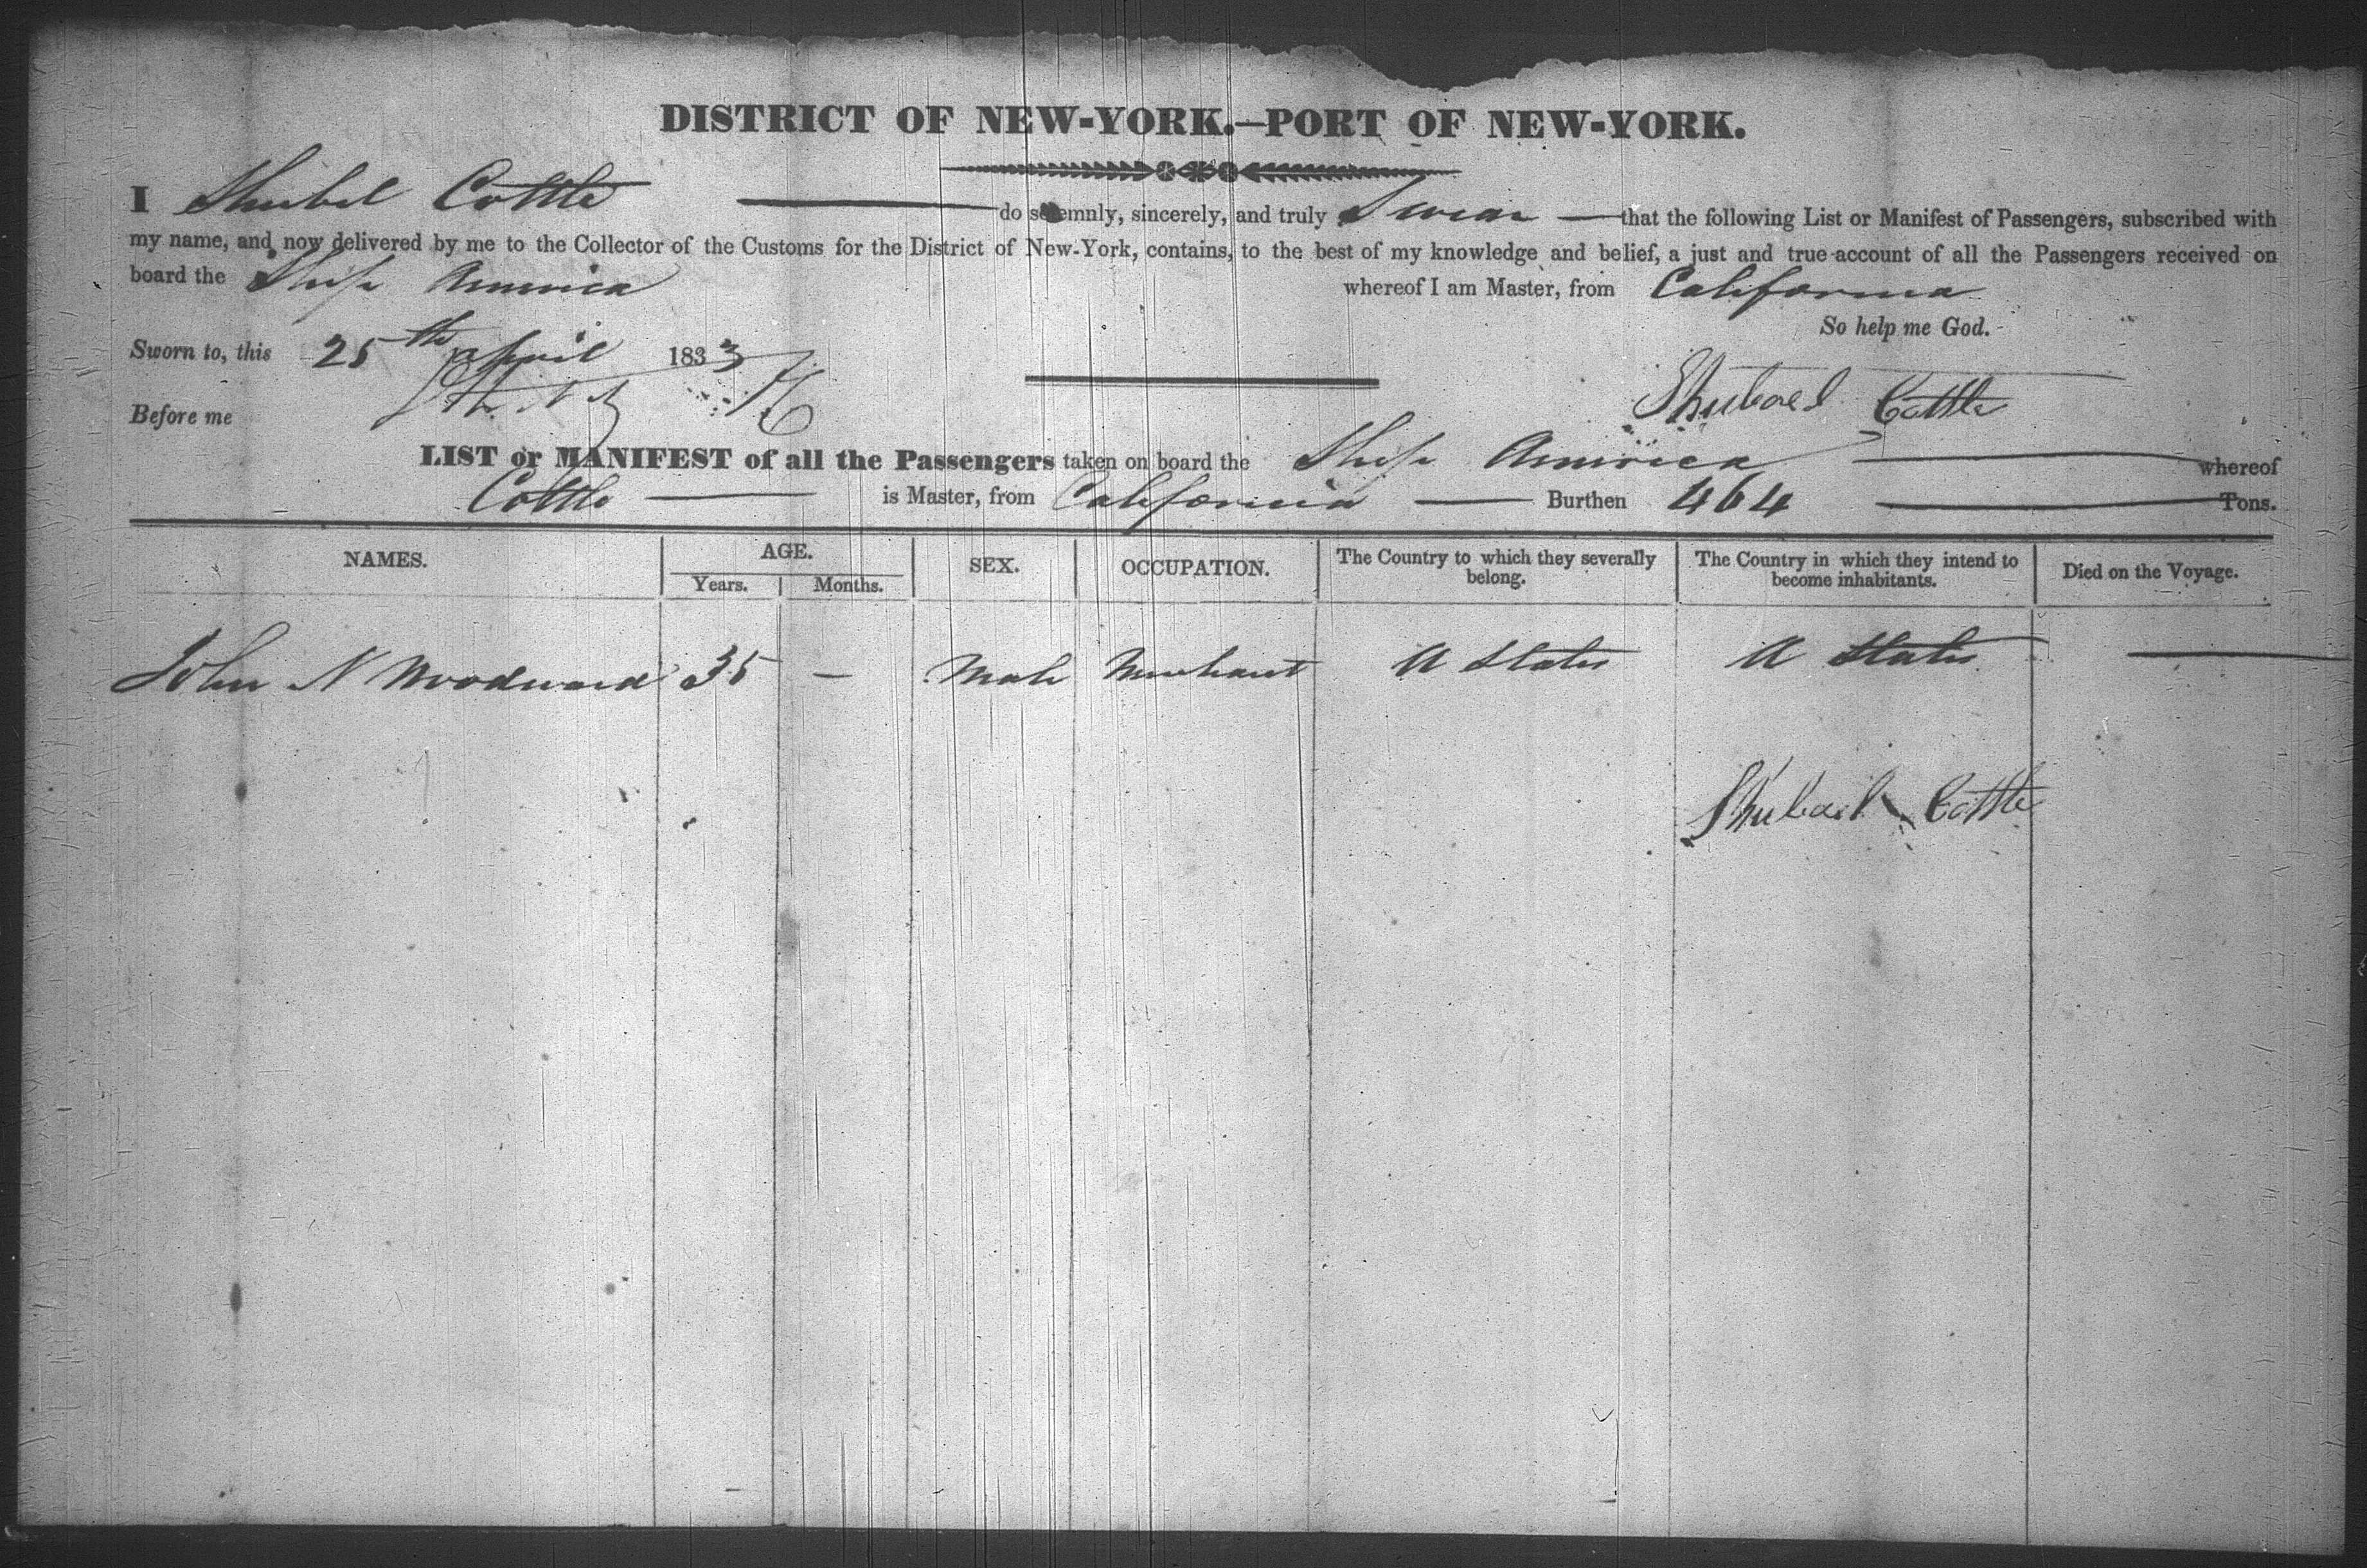 DISTRICT OF NEW-YORK.—PORT OF NEW-YORK.
I Shubel Cottle do solemnly, sincerely, and truly Swear that the following List or Manifest of Passengers, subscribed with
my name, and now delivered by me to the Collector of the Customs for the District of New-York, contains, to the best of my knowledge and belief, a just and true account of all the Passengers received on
board the Ship America whereof I am Master, from California
So help me God.
Sworn to, this 25th April 1833
Shubael Cottle
Before me
LIST or MANIFEST of all the Passengers taken on board the Ship America whereof
Cottle is Master, from California Burthen 464 Tons.
NAMES. AGE. SEX. OCCUPATION. The Country to which they severally belong. The Country in which they intend to become inhabitants. Died on the Voyage.
Years. Months.
John N Woodward 35 — Male Merchant U States U States —
Shubael Cottle